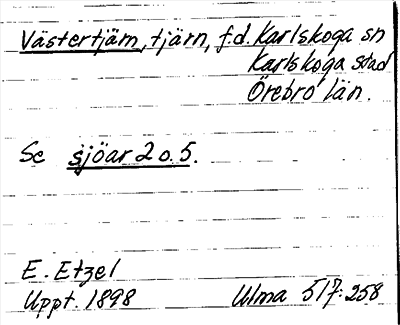 Västertjärn, tjärn, f.d. Karlskoga sn
Karlskoga stad
Örebro län.
Se sjöar 2 o. 5.
E. Etzel
Uppt. 1898 Ulma 517:258